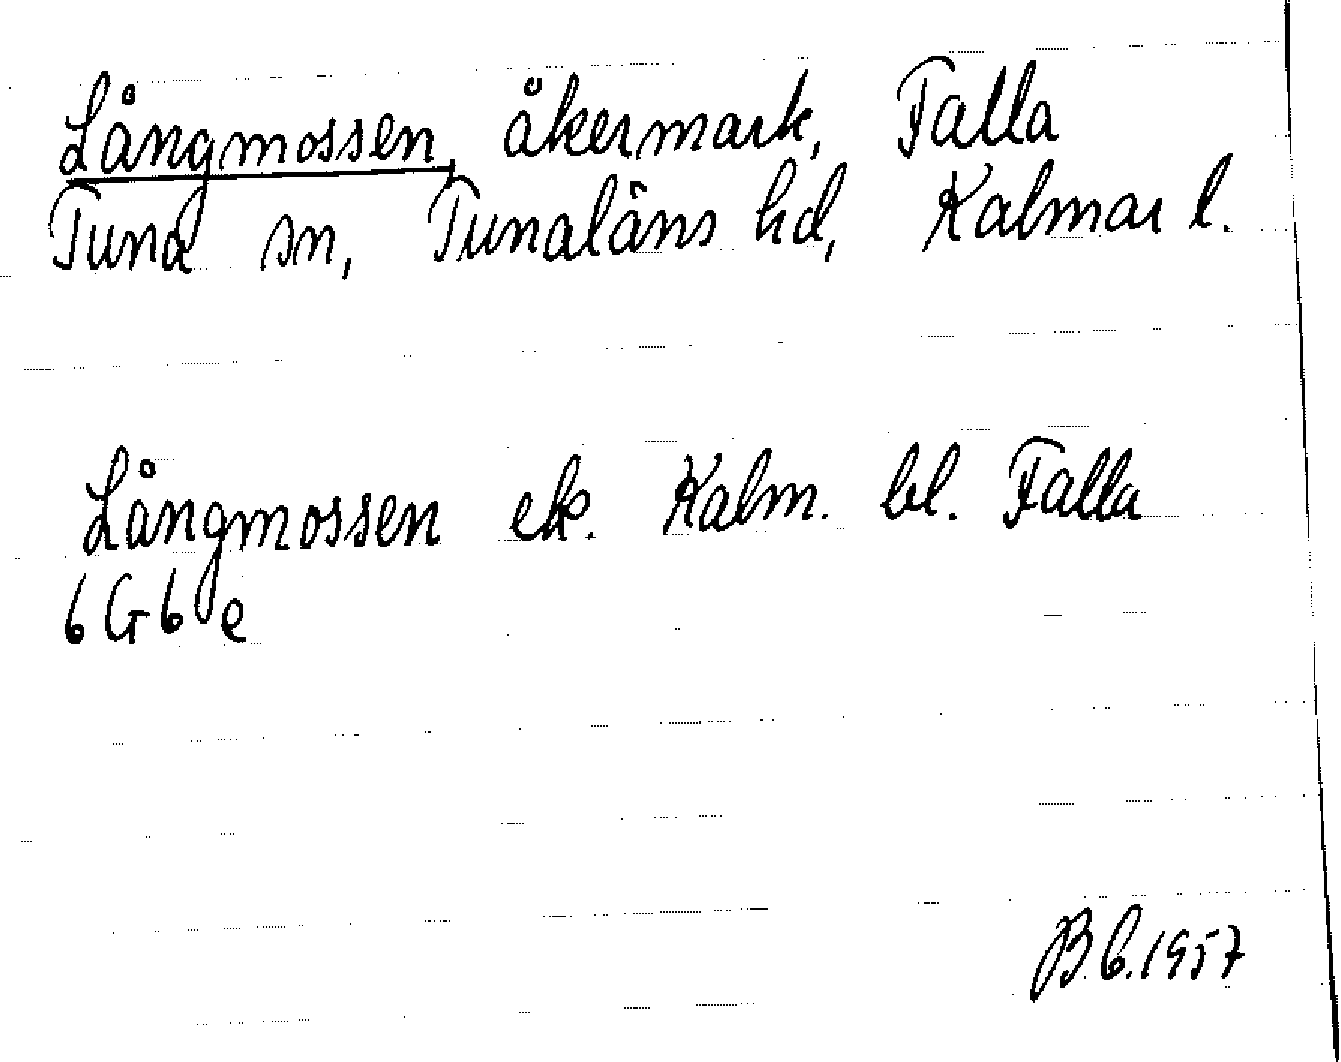 Långmossen, åkermark, Falla
Tuna sn, Tunaläns hd, Kalmar l.
Långmossen ek. Kalm. bl. Falla
6 G 6 e
B.C. 1957